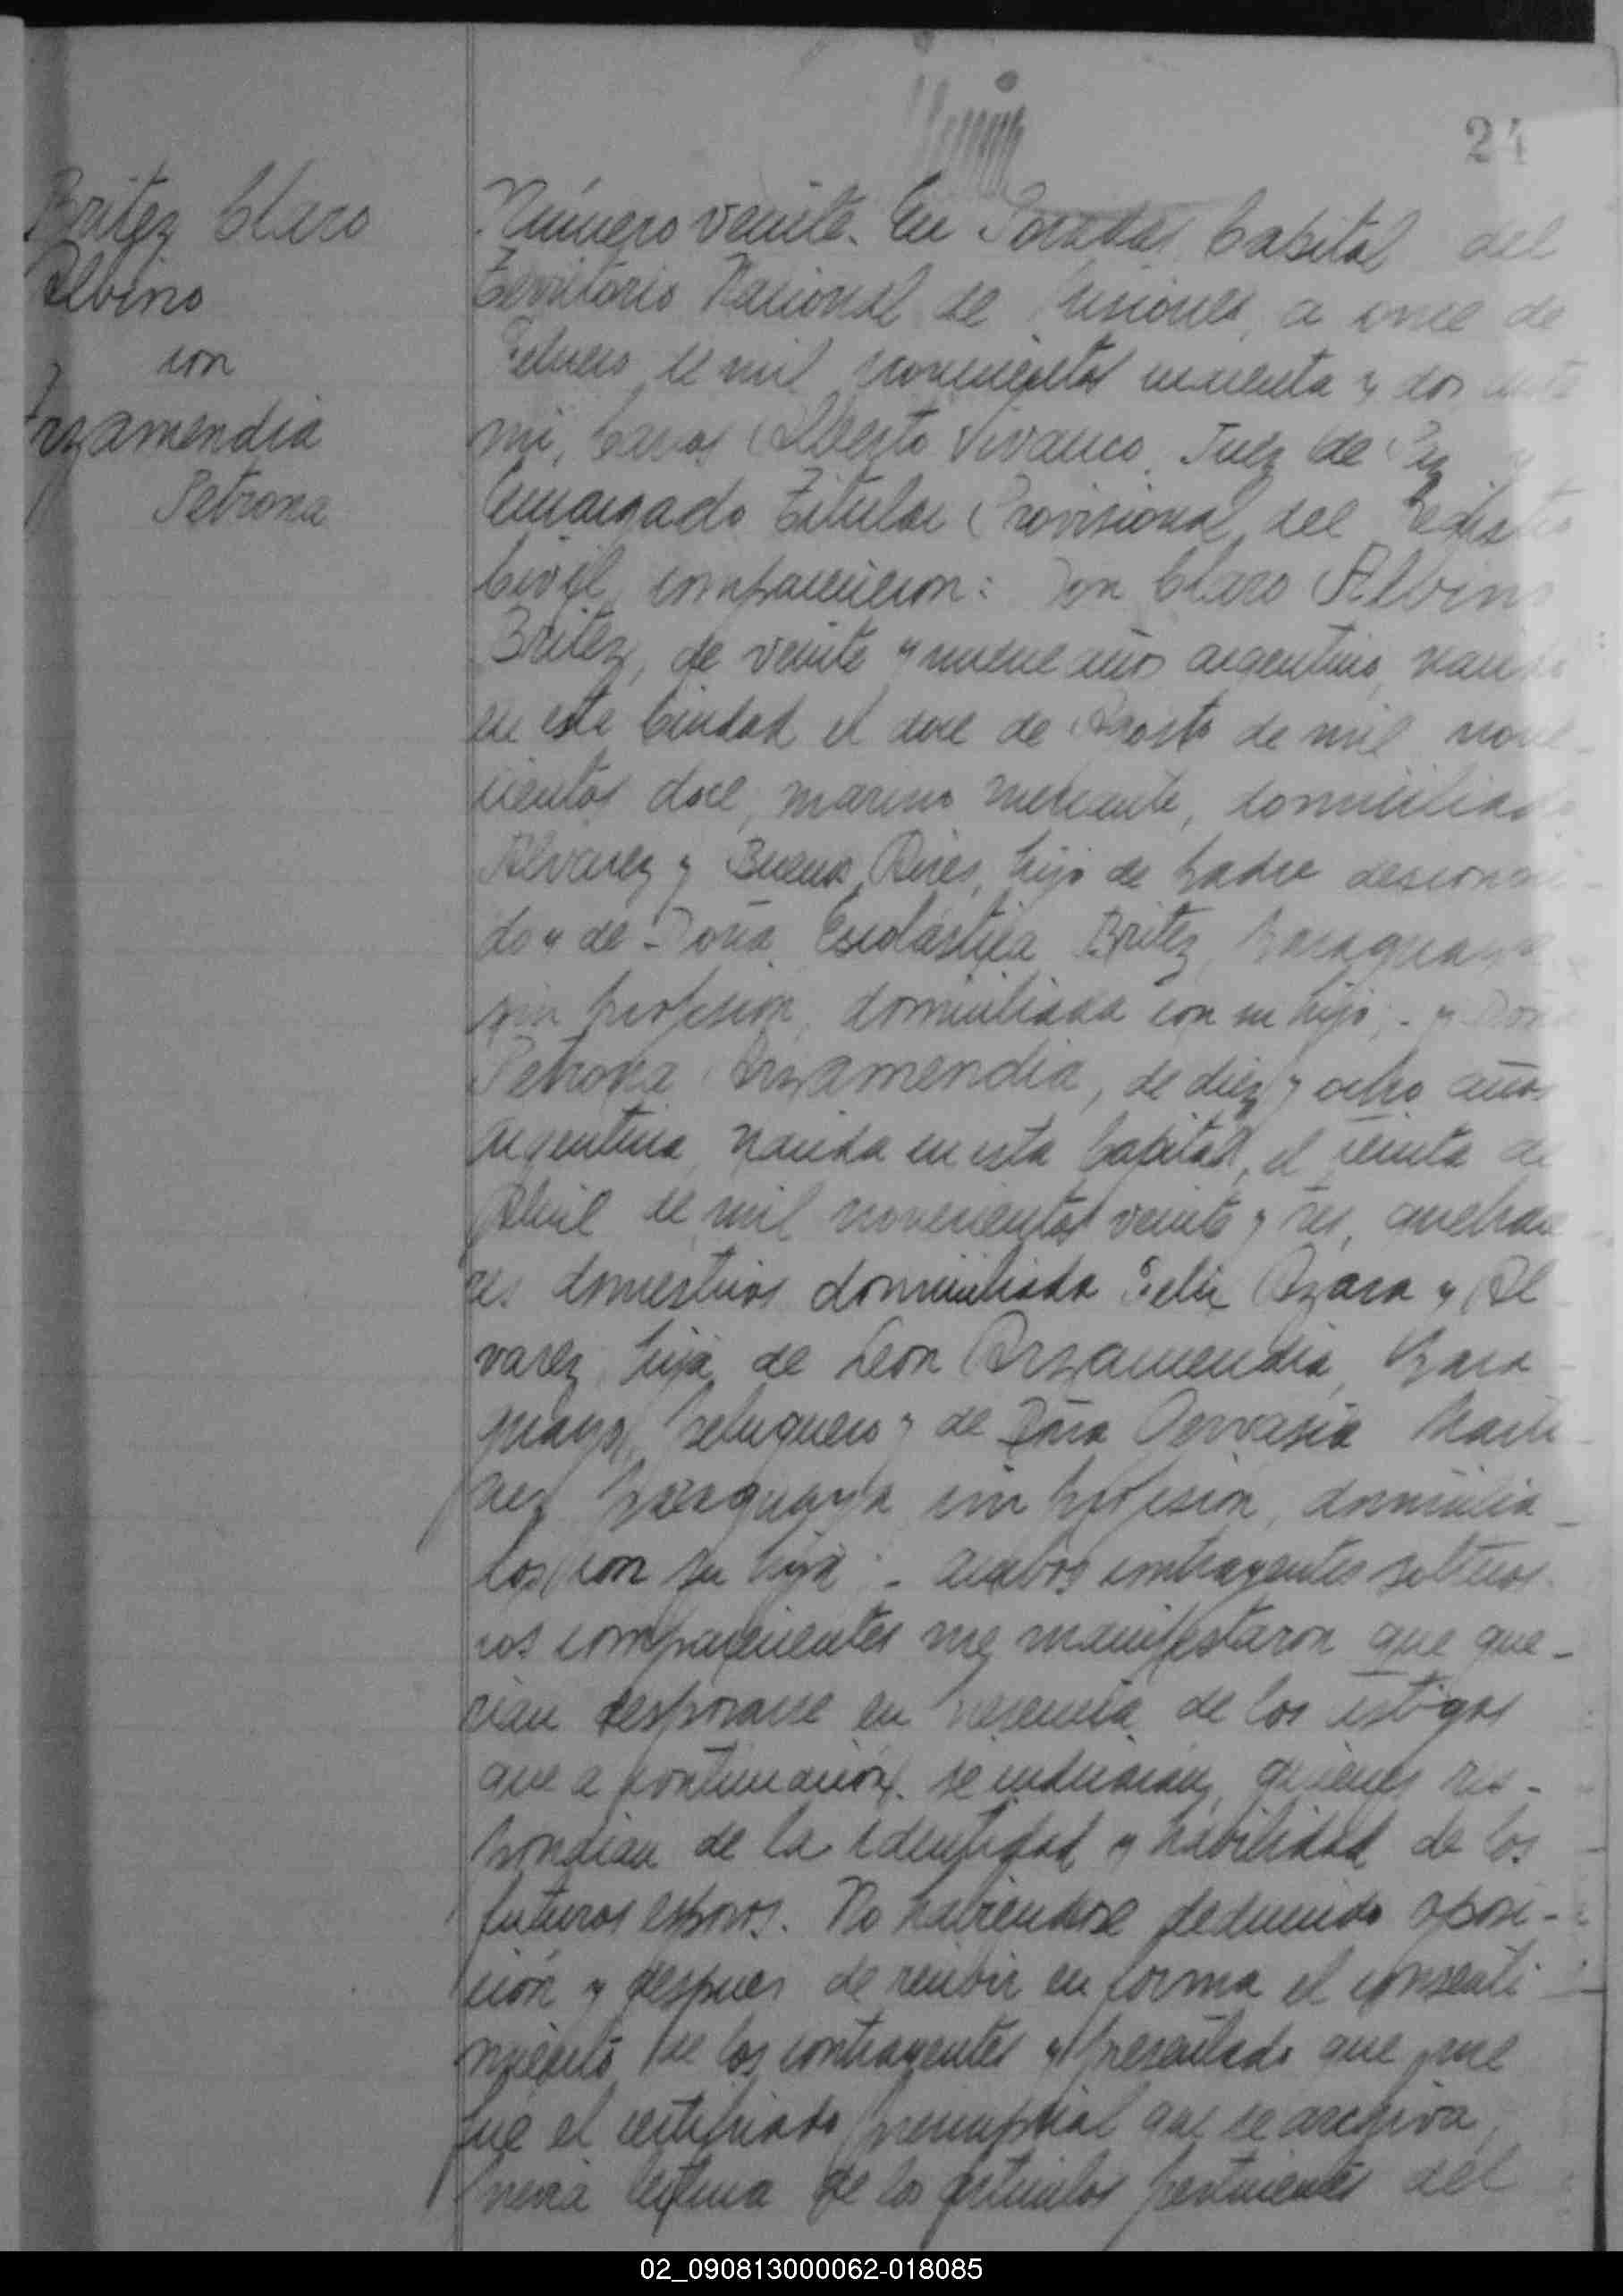 24
Britez Claro
Albino
con
Arzamendia
Petrona
Número veinte. En Posadas Capital del
Territorio Nacional de Misiones, a once de
Febrero de mil novecientos cuarenta y dos ante
mi, Carlos Alberto Vivanco, Juez de Paz y
Encargado Titular Provisional del Registro
Civil, comparecieron: Don Claro Albino
Britez, de veinte y nueve años argentino, nacido
en esta Ciudad el doce de Agosto de mil nove-
cientos doce, marino mercante, domiciliado
Alvarez y Buenos Aires, hijo de padre desconoci-
do y de Doña Escolástica Britez, paraguaya
sin profesion, domiciliada con su hijo; - y Doña
Petrona Arzamendia, de diez y ocho años
argentina, nacida en esta Capital, el treinta de
Abril de mil novecientos veinte y tres, quehace
res domesticos domiciliada Felix Azara y Al
varez, hija de Leon Arzamendia, Para-
guayo, peluquero y de Doña Gervasia Marti-
nez paraguaya sin profesion, domicilia-
dos con su hija; - ambos contrayentes solteros.
Los comparecientes me manifestaron que que-
rian desposarse en presencia de los testigos
que a continuación se indicarán, quienes res-
pondian de la identidad y habilidad de los
futuros esposos. No habiendose deducido oposi-
ción y despues de recibir en forma el consenti
miento de los contrayentes y presentado que me
fue el certificado prenupcial que se archiva,
previa lectura de los articulos pertinentes del
02_090813000062-018085